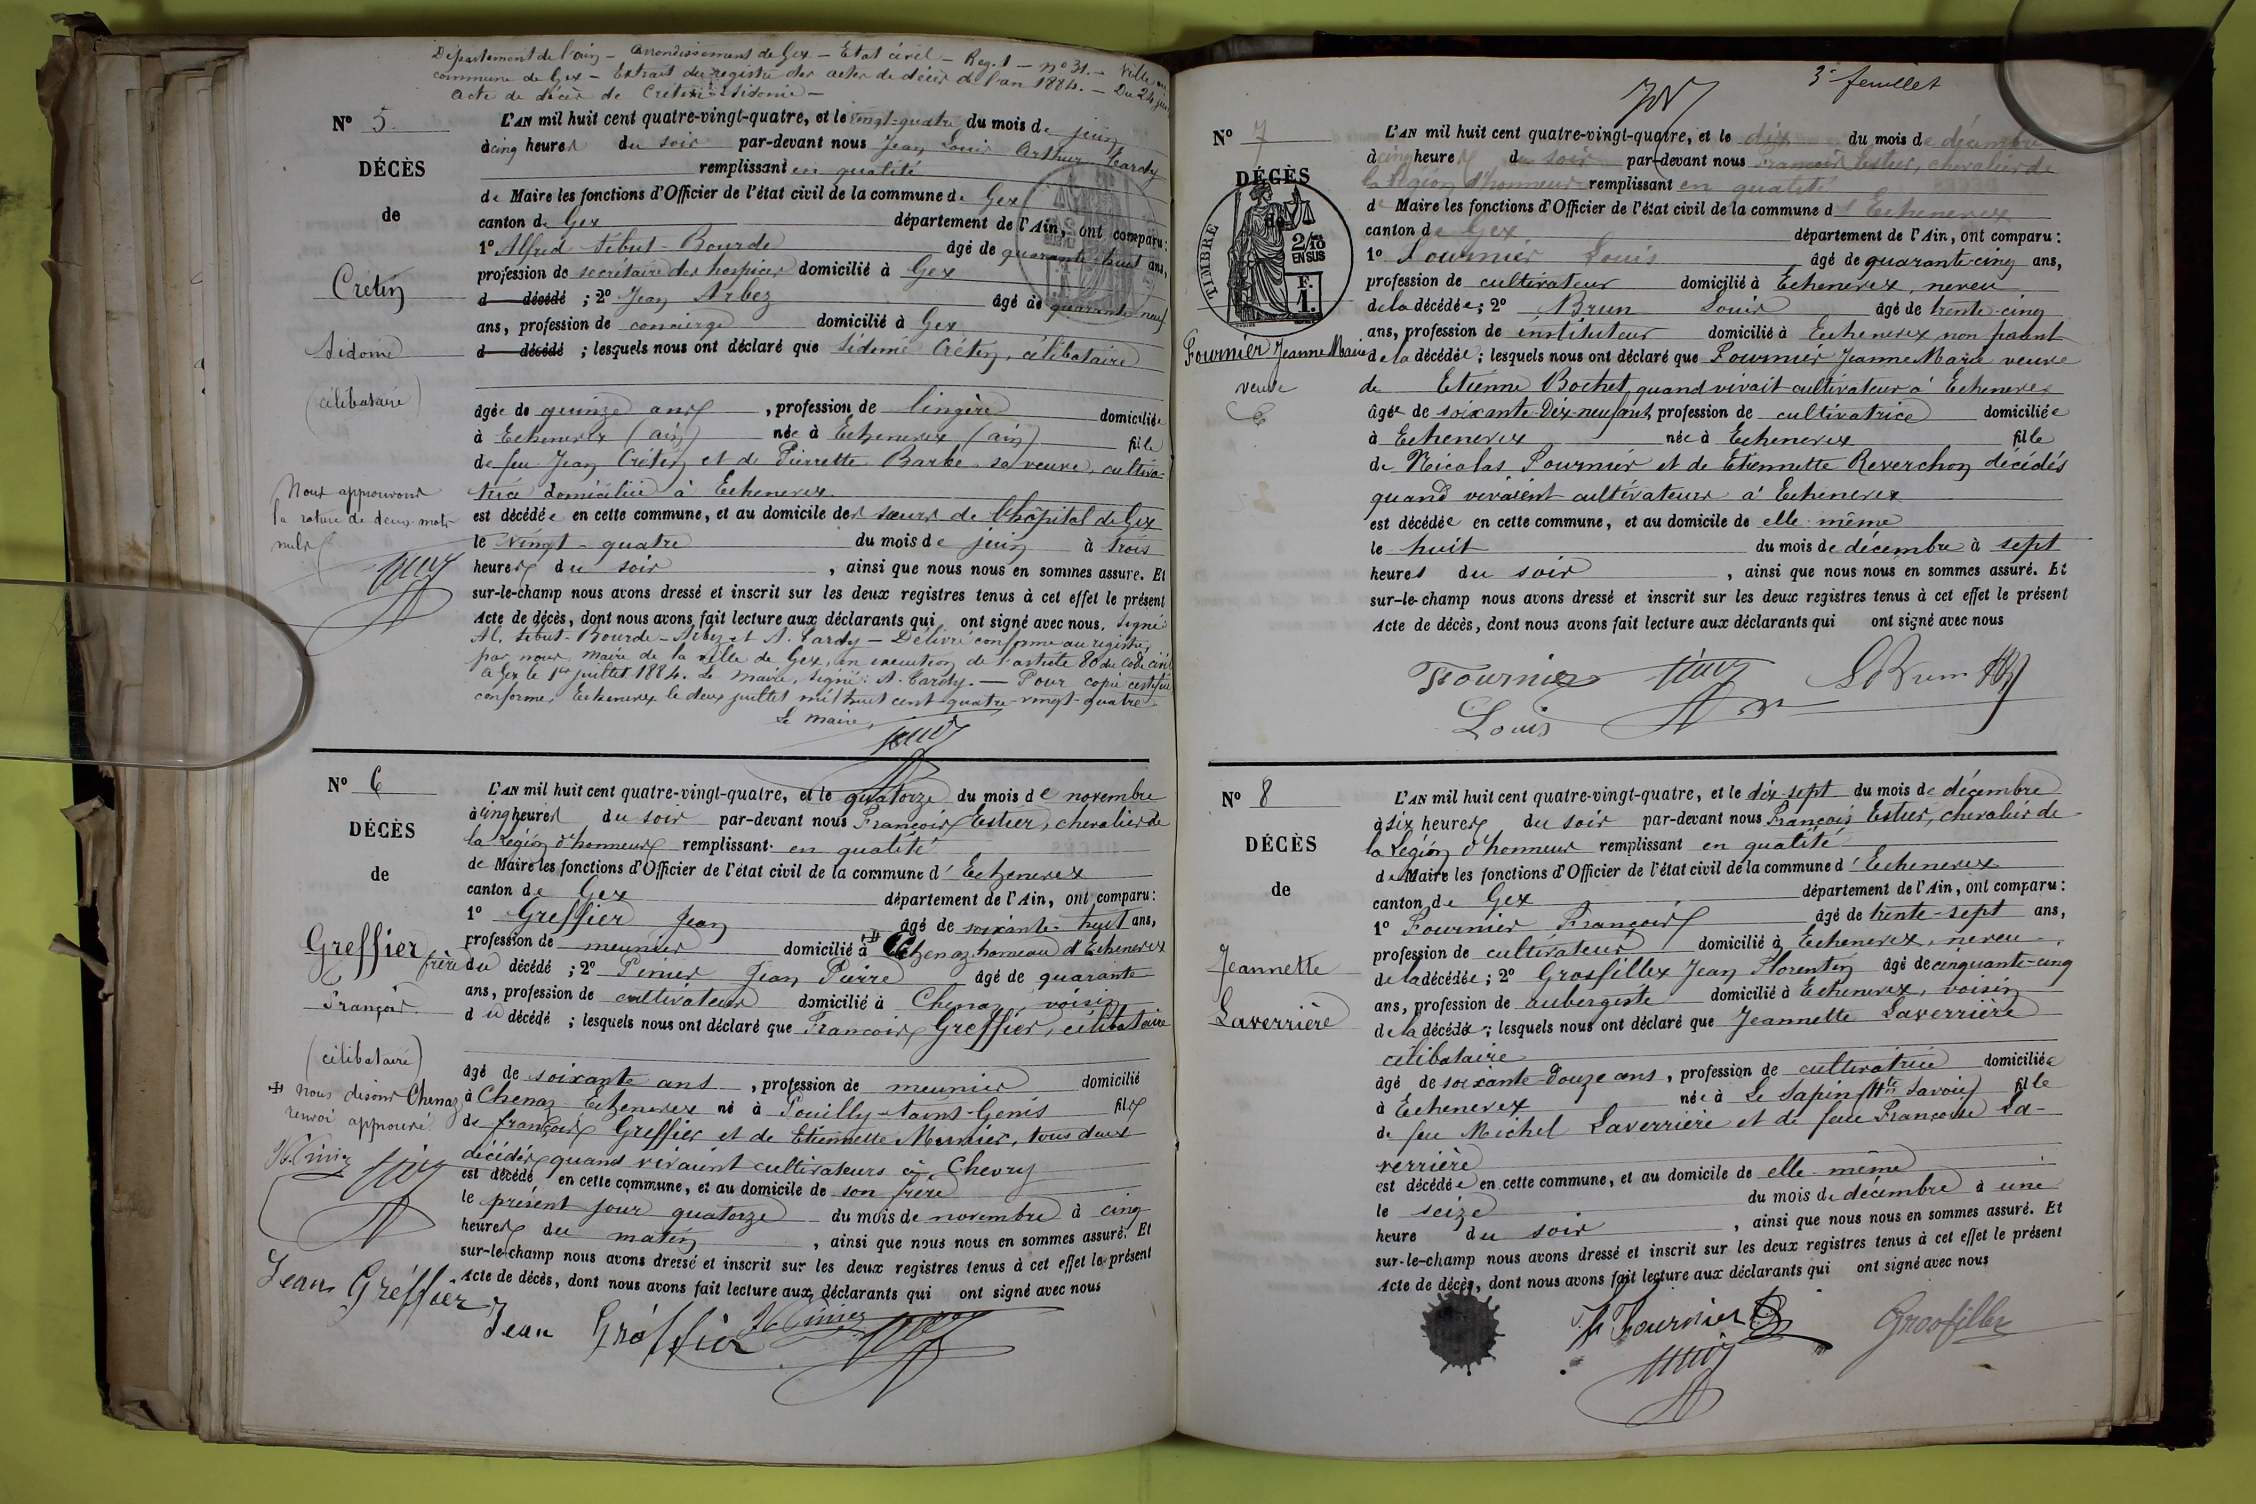 Département de l'ain - Arrondissement de Gex - Etat civil - Reg. 1 - nº 31. - Ville ou
commune de Gex - Extrait du registre des actes de décès de l'an 1884. - Du 24 juin
acte de décès de Crétin Sidonie -
Nº 5
DÉCÈS
de
Crétin
Sidonie
(célibataire)
Nous approuvons
la rature de deux mots
nuls
L'AN mil huit cent quatre-vingt-quatre, et le vingt-quatre du mois de juin
à cinq heures du soir par-devant nous Jean Louis Arthur Tardy
remplissant en qualité
de Maire les fonctions d'Officier de l'état civil de la commune de Gex
canton de Gex département de l'Ain, ont comparu:
1º Alfred Sébut-Bourde âgé de quarante-huit ans,
profession de secrétaire des hospices domicilié à Gex
d décédé ; 2º Jean Arbez âgé de quarante-neuf
ans, profession de concierge domicilié à Gex
d décédé ; lesquels nous ont déclaré que Sidonie Crétin, célibataire
âgée de quinze ans , profession de lingère domiciliée
à Echenevex (ain) née à Echenevex (ain) fille
de feu Jean Crétin et de Pierrette Barbe sa veuve, cultiva-
trice domiciliée à Echenevex
est décédée en cette commune, et au domicile des sœurs de l'hôpital de Gex
le vingt-quatre du mois de juin à trois
heures du soir , ainsi que nous nous en sommes assuré. Et
sur-le-champ nous avons dressé et inscrit sur les deux registres tenus à cet effet le présent
Acte de décès, dont nous avons fait lecture aux déclarants qui ont signé avec nous. Signé:
Al. Sébut-Bourde - Arbez et A. Tardy - Délivré conforme au registre
par nous, maire de la ville de Gex, en exécution de l'article 80 du Code civil
à Gex le 1er juillet 1884. Le maire, signé: A. Tardy. - Pour copie certifiée
conforme, Echenevex le deux juillet mil huit cent quatre-vingt-quatre
Le maire,
Nº 6
DÉCÈS
de
Greffier
François
(célibataire)
nous disons Chenaz
renvoi approuvé
L'AN mil huit cent quatre-vingt-quatre, et le quatorze du mois de novembre
à cinq heures du soir par-devant nous François Estier, chevalier de
la Légion d'honneur remplissant en qualité
de Maire les fonctions d'Officier de l'état civil de la commune d'Echenevex
canton de Gex département de l'Ain, ont comparu:
1º Greffier Jean âgé de soixante-huit ans,
profession de meunier domicilié à Chenaz hameau d'Echenevex
frère du décédé ; 2º Pinier Jean Pierre âgé de quarante
ans, profession de cultivateur domicilié à Chenaz, voisin
du décédé ; lesquels nous ont déclaré que François Greffier, célibataire
âgé de soixante ans , profession de meunier domicilié
à Chenaz-Echenevex né à Pouilly-Saint-Genis fils
de françois Greffier et de Etiennette Meunier, tous deux
décédés quand vivaient cultivateurs à Chevry
est décédé en cette commune, et au domicile de son frère
le présent jour quatorze du mois de novembre à cinq
heures du matin , ainsi que nous nous en sommes assuré. Et
sur-le-champ nous avons dressé et inscrit sur les deux registres tenus à cet effet le présent
Acte de décès, dont nous avons fait lecture aux déclarants qui ont signé avec nous
Jean Gréffier
Jean Gréffier
3e feuillet
Nº 7
DÉCÈS
de
TIMBRE
2/10
EN SUS
F.
1.
Fournier Jeanne Marie
veuve
L'AN mil huit cent quatre-vingt-quatre, et le dix du mois de décembre
à cinq heures du soir par-devant nous François Estier, chevalier de
la Légion d'honneur remplissant en qualité
de Maire les fonctions d'Officier de l'état civil de la commune d'Echenevex
canton de Gex département de l'Ain, ont comparu:
1º Fournier Louis âgé de quarante-cinq ans,
profession de cultivateur domicilié à Echenevex, neveu
de la décédée; 2º Brun Louis âgé de trente-cinq
ans, profession de instituteur domicilié à Echenevex non parent
de la décédée; lesquels nous ont déclaré que Fournier Jeanne Marie veuve
de Etienne Bochet quand vivait cultivateur à Echenevex
âgée de soixante-dix-neuf ans, profession de cultivatrice domiciliée
à Echenevex née à Echenevex fille
de Nicolas Fournier et de Etiennette Reverchon décédés
quand vivaient cultivateurs à Echenevex
est décédée en cette commune, et au domicile de elle-même
le huit du mois de décembre à sept
heures du soir , ainsi que nous nous en sommes assuré. Et
sur-le-champ nous avons dressé et inscrit sur les deux registres tenus à cet effet le présent
Acte de décès, dont nous avons fait lecture aux déclarants qui ont signé avec nous
Fournier
Louis
L Brun
Nº 8
DÉCÈS
de
Jeannette
Laverrière
L'AN mil huit cent quatre-vingt-quatre, et le dix-sept du mois de décembre
à six heures du soir par-devant nous François Estier, chevalier de
la Légion d'honneur remplissant en qualité
de Maire les fonctions d'Officier de l'état civil de la commune d'Echenevex
canton de Gex département de l'Ain, ont comparu:
1º Fournier François âgé de trente-sept ans,
profession de cultivateur domicilié à Echenevex, neveu
de la décédée; 2º Grosfillex Jean Florentin âgé de cinquante-cinq
ans, profession de aubergiste domicilié à Echenevex, voisin
de la décédée; lesquels nous ont déclaré que Jeannette Laverrière
célibataire
âgé de soixante-douze ans, profession de cultivatrice domiciliée
à Echenevex née à Le Sapin (Hte Savoie) fille
de feu Michel Laverrière et de feue Françoise La-
verrière
est décédée en cette commune, et au domicile de elle-même
le seize du mois de décembre à une
heure du soir , ainsi que nous nous en sommes assuré. Et
sur-le-champ nous avons dressé et inscrit sur les deux registres tenus à cet effet le présent
Acte de décès, dont nous avons fait lecture aux déclarants qui ont signé avec nous
Fournier
Grosfillex